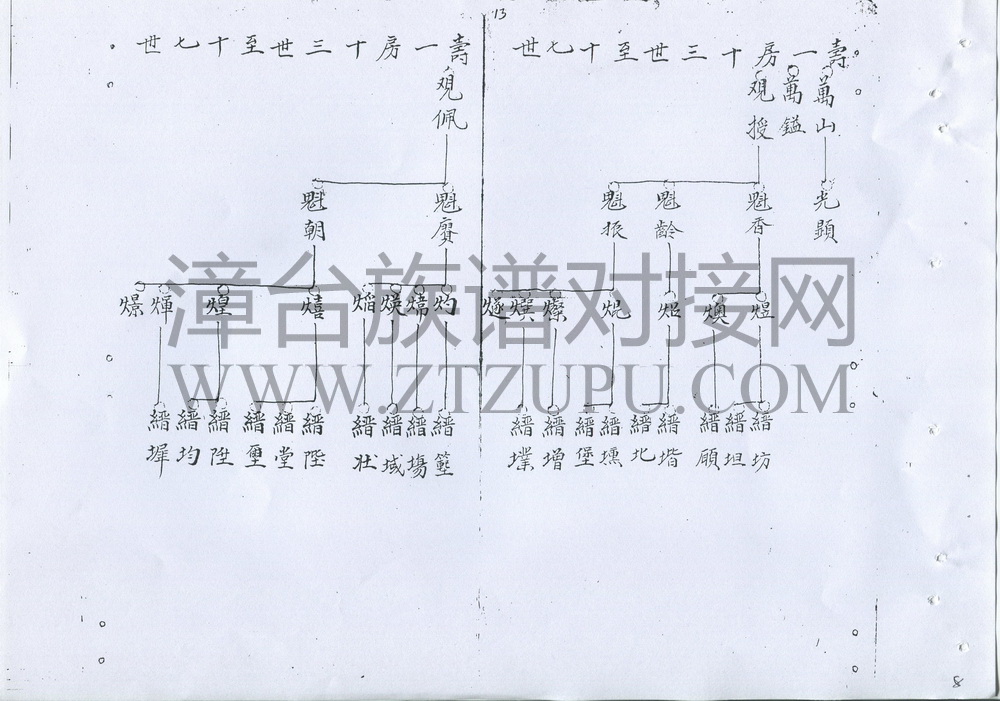 13
壽一房十三世至十七世
萬山
萬鎰
观授
光顯
魁香
魁齡
魁振
煜
燠
炤
熀
燦
燧
縉坊
縉坦
縉願
縉堦
縉北
縉壎
縉堡
縉增
縉墣
壽一房十三世至十七世
观佩
魁賡
魁朝
灼
煥
熖
熺
煌
煇
燝
縉塰
縉塲
縉域
縉壯
縉陛
縉堂
縉璽
縉陞
縉均
縉墀
漳台族谱对接网
WWW.ZTZUPU.COM
8